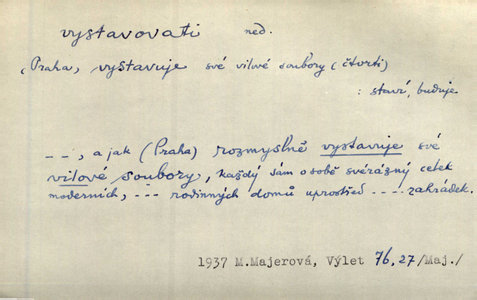 vystavovati ned.
(Praha, vystavuje své vilové soubory (čtvrti)
: staví, buduje
– – , a jak (Praha) rozmyslně vystavuje své
vilové soubory, každý sám o sobě svérázný celek
moderních, – – – rodinných domů uprostřed – – – – zahrádek.
1937 M.Majerová, Výlet 76,27/Maj./